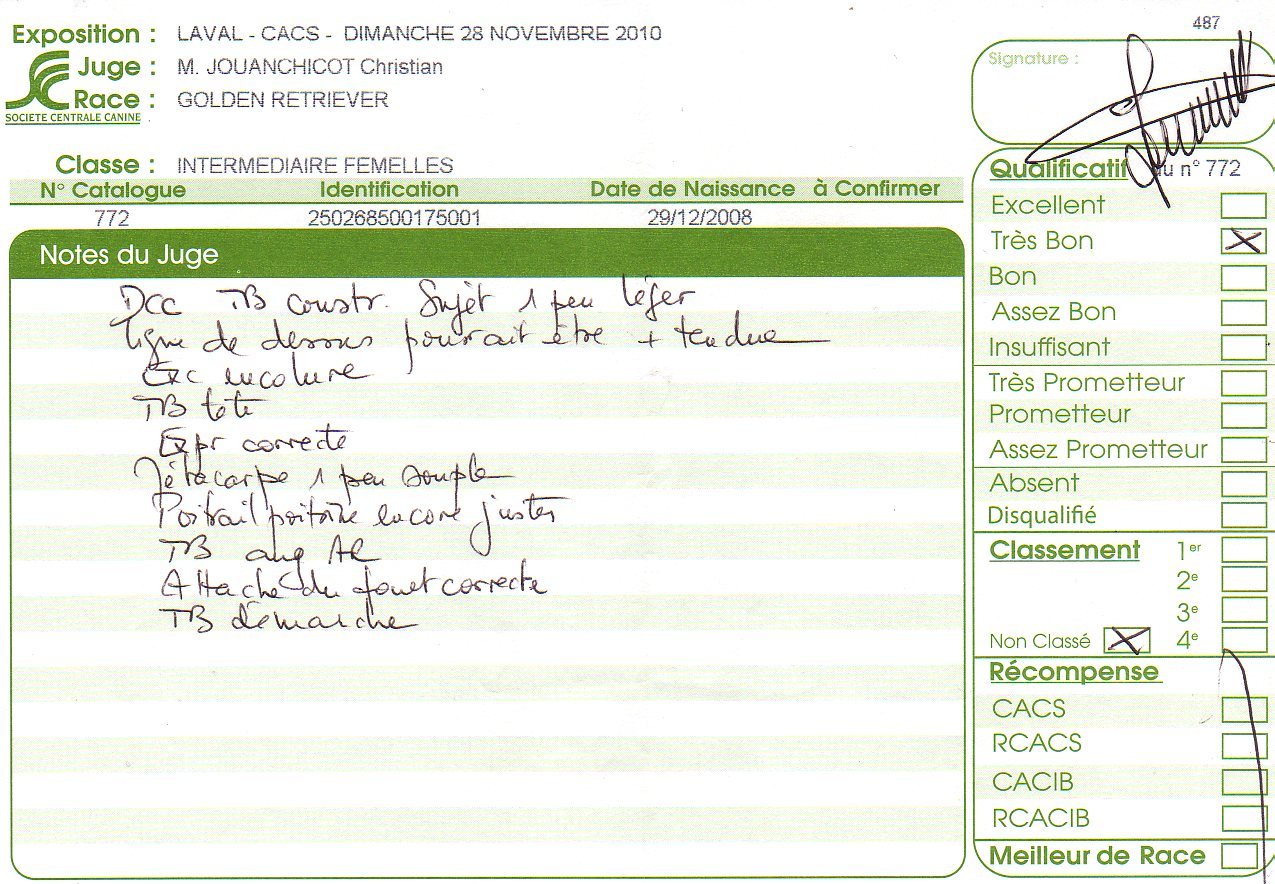 487
Exposition : LAVAL - CACS - DIMANCHE 28 NOVEMBRE 2010
Juge : M. JOUANCHICOT Christian
Race : GOLDEN RETRIEVER
SOCIETE CENTRALE CANINE
Classe : INTERMEDIAIRE FEMELLES
N° Catalogue Identification Date de Naissance à Confirmer
772 250268500175001 29/12/2008
Notes du Juge
Dcc TB constr. Sujet 1 peu léger
ligne de dessus pourrait être + tendue
Exc encolure
TB tête
Expr correcte
Métacarpe 1 peu souple
Poitrail poitrine encore justes
TB ang AR
Attache du fouet correcte
TB démarche
Signature :
Qualificatif du n° 772
Excellent
Très Bon X
Bon
Assez Bon
Insuffisant
Très Prometteur
Prometteur
Assez Prometteur
Absent
Disqualifié
Classement 1er
2e
3e
Non Classé X 4e
Récompense
CACS
RCACS
CACIB
RCACIB
Meilleur de Race